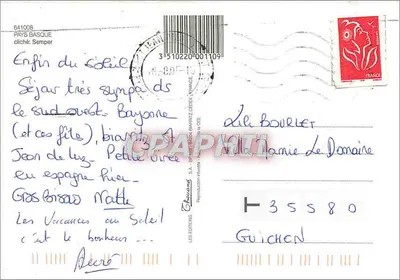 641008
PAYS BASQUE
cliché: Semper
3 510220 001109
FRANCE
Enfin du Soleil
Séjour très sympa ds
le sud ouest. Bayonne
(et ces fêtes), biarritz, St
Jean de luz - Petite virée
en espagne hier -
Gros bisous
Les Vacances au Soleil
c'est le bonheur ...
LES EDITIONS
CPAPHIL
BOURLET
Le Domaine
T 35580
GUICHEN